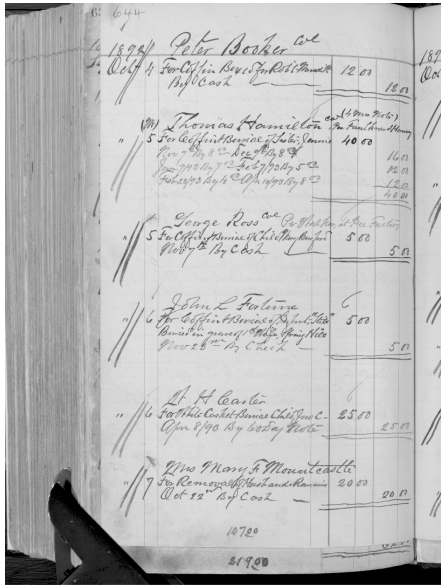 644
1892 Peter Booker Col
Oct 4 For Coffin Box 12 00
By Cash 12 00
Thomas Hamilton Col (4 Mos Note)
5 For Coffin & Burial of Sister, Jennie 40 00
Nov 7th By 8 00 Dec 9th By 8 00 16 00
By 7 Feb 7/93 By 5 00 12 00
Feb 28/93 By 4 00 Apr 10/93 By 8 00 12 00
40 00
George Ross Col
" 5 For Coffin & Burial of Child 5 00
Nov 7th By Cash 5 00
John L Fortune
" 6 For Coffin & Burial of Infant 5 00
Buried in grave of 1st Wife, Spring Hill
Nov 28th By Check 5 00
H Carter
" 6 For White Casket Burial Child Jno C 25 00
Apr 8/93 By 60 Day Note 25 00
Mrs Mary F Mountcastle
" 7 For Removal of Husbands Remains 20 00
Oct 22nd By Cash 20 00
107 00
219 00